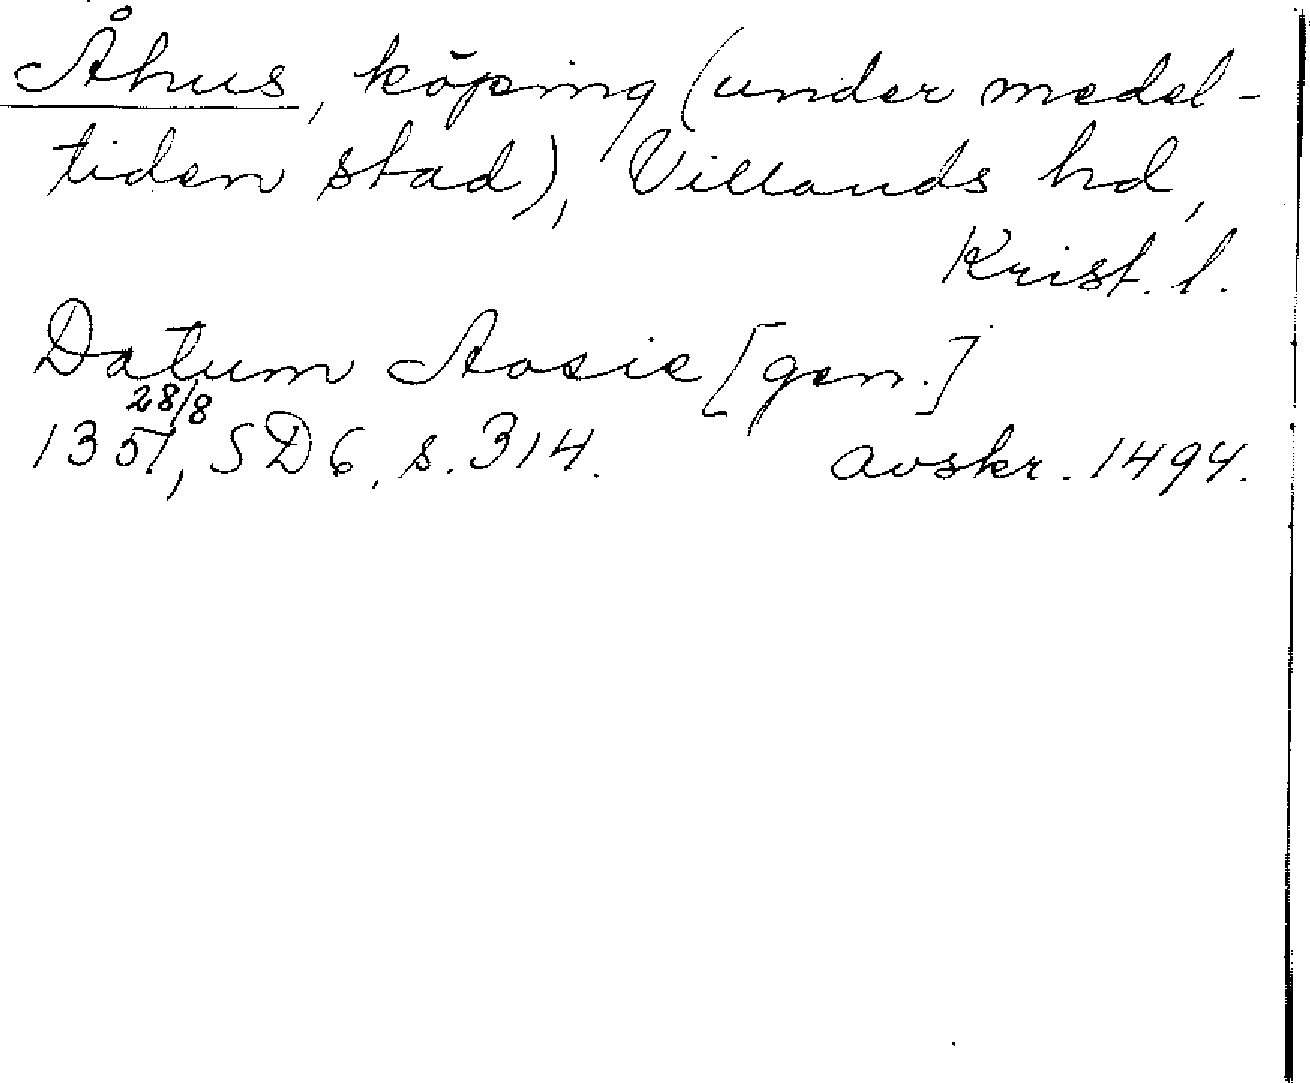 Åhus, köping (under medel-
tiden stad), Villands hd,
Krist. l.
Datum Aosie [gen.]
28/8
1351, SD 6, s. 314. avskr. 1494.